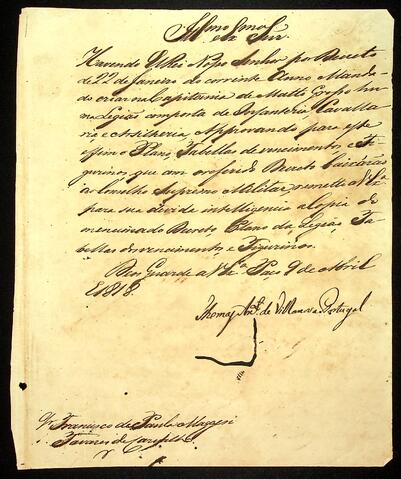 Illmo Exmo
Snr.
Havendo ElRei Nosso Senhor por Decreto
de 22 de Janeiro do corrente Anno Manda-
do crear na Capitania de Matto Grosso hu-
ma Legião composta de Infanteria Cavalla-
ria e Artilheria, Approvando para este
fim o Plano, Tabellas de vencimentos e Fi-
gurinos, que com o referido Decreto
ao Conselho Supremo Militar; remetto a V. Exa
para sua devida intelligencia a Copia do
mencionado Decreto, Plano da Legião, Ta-
bellas de vencimento, e Figurinos.
Deos Guarde a V. Exa Paço 9 de Abril
de 1818.
Thomaz Anto de Villanova Portugal
Sr Francisco de Paula Maggesi
Tavares de Carvalho